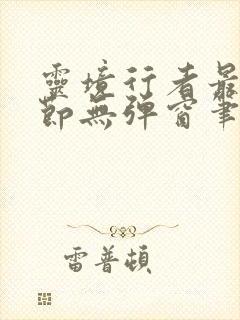 靈境行者最
節無彈窗筆
雷普頓